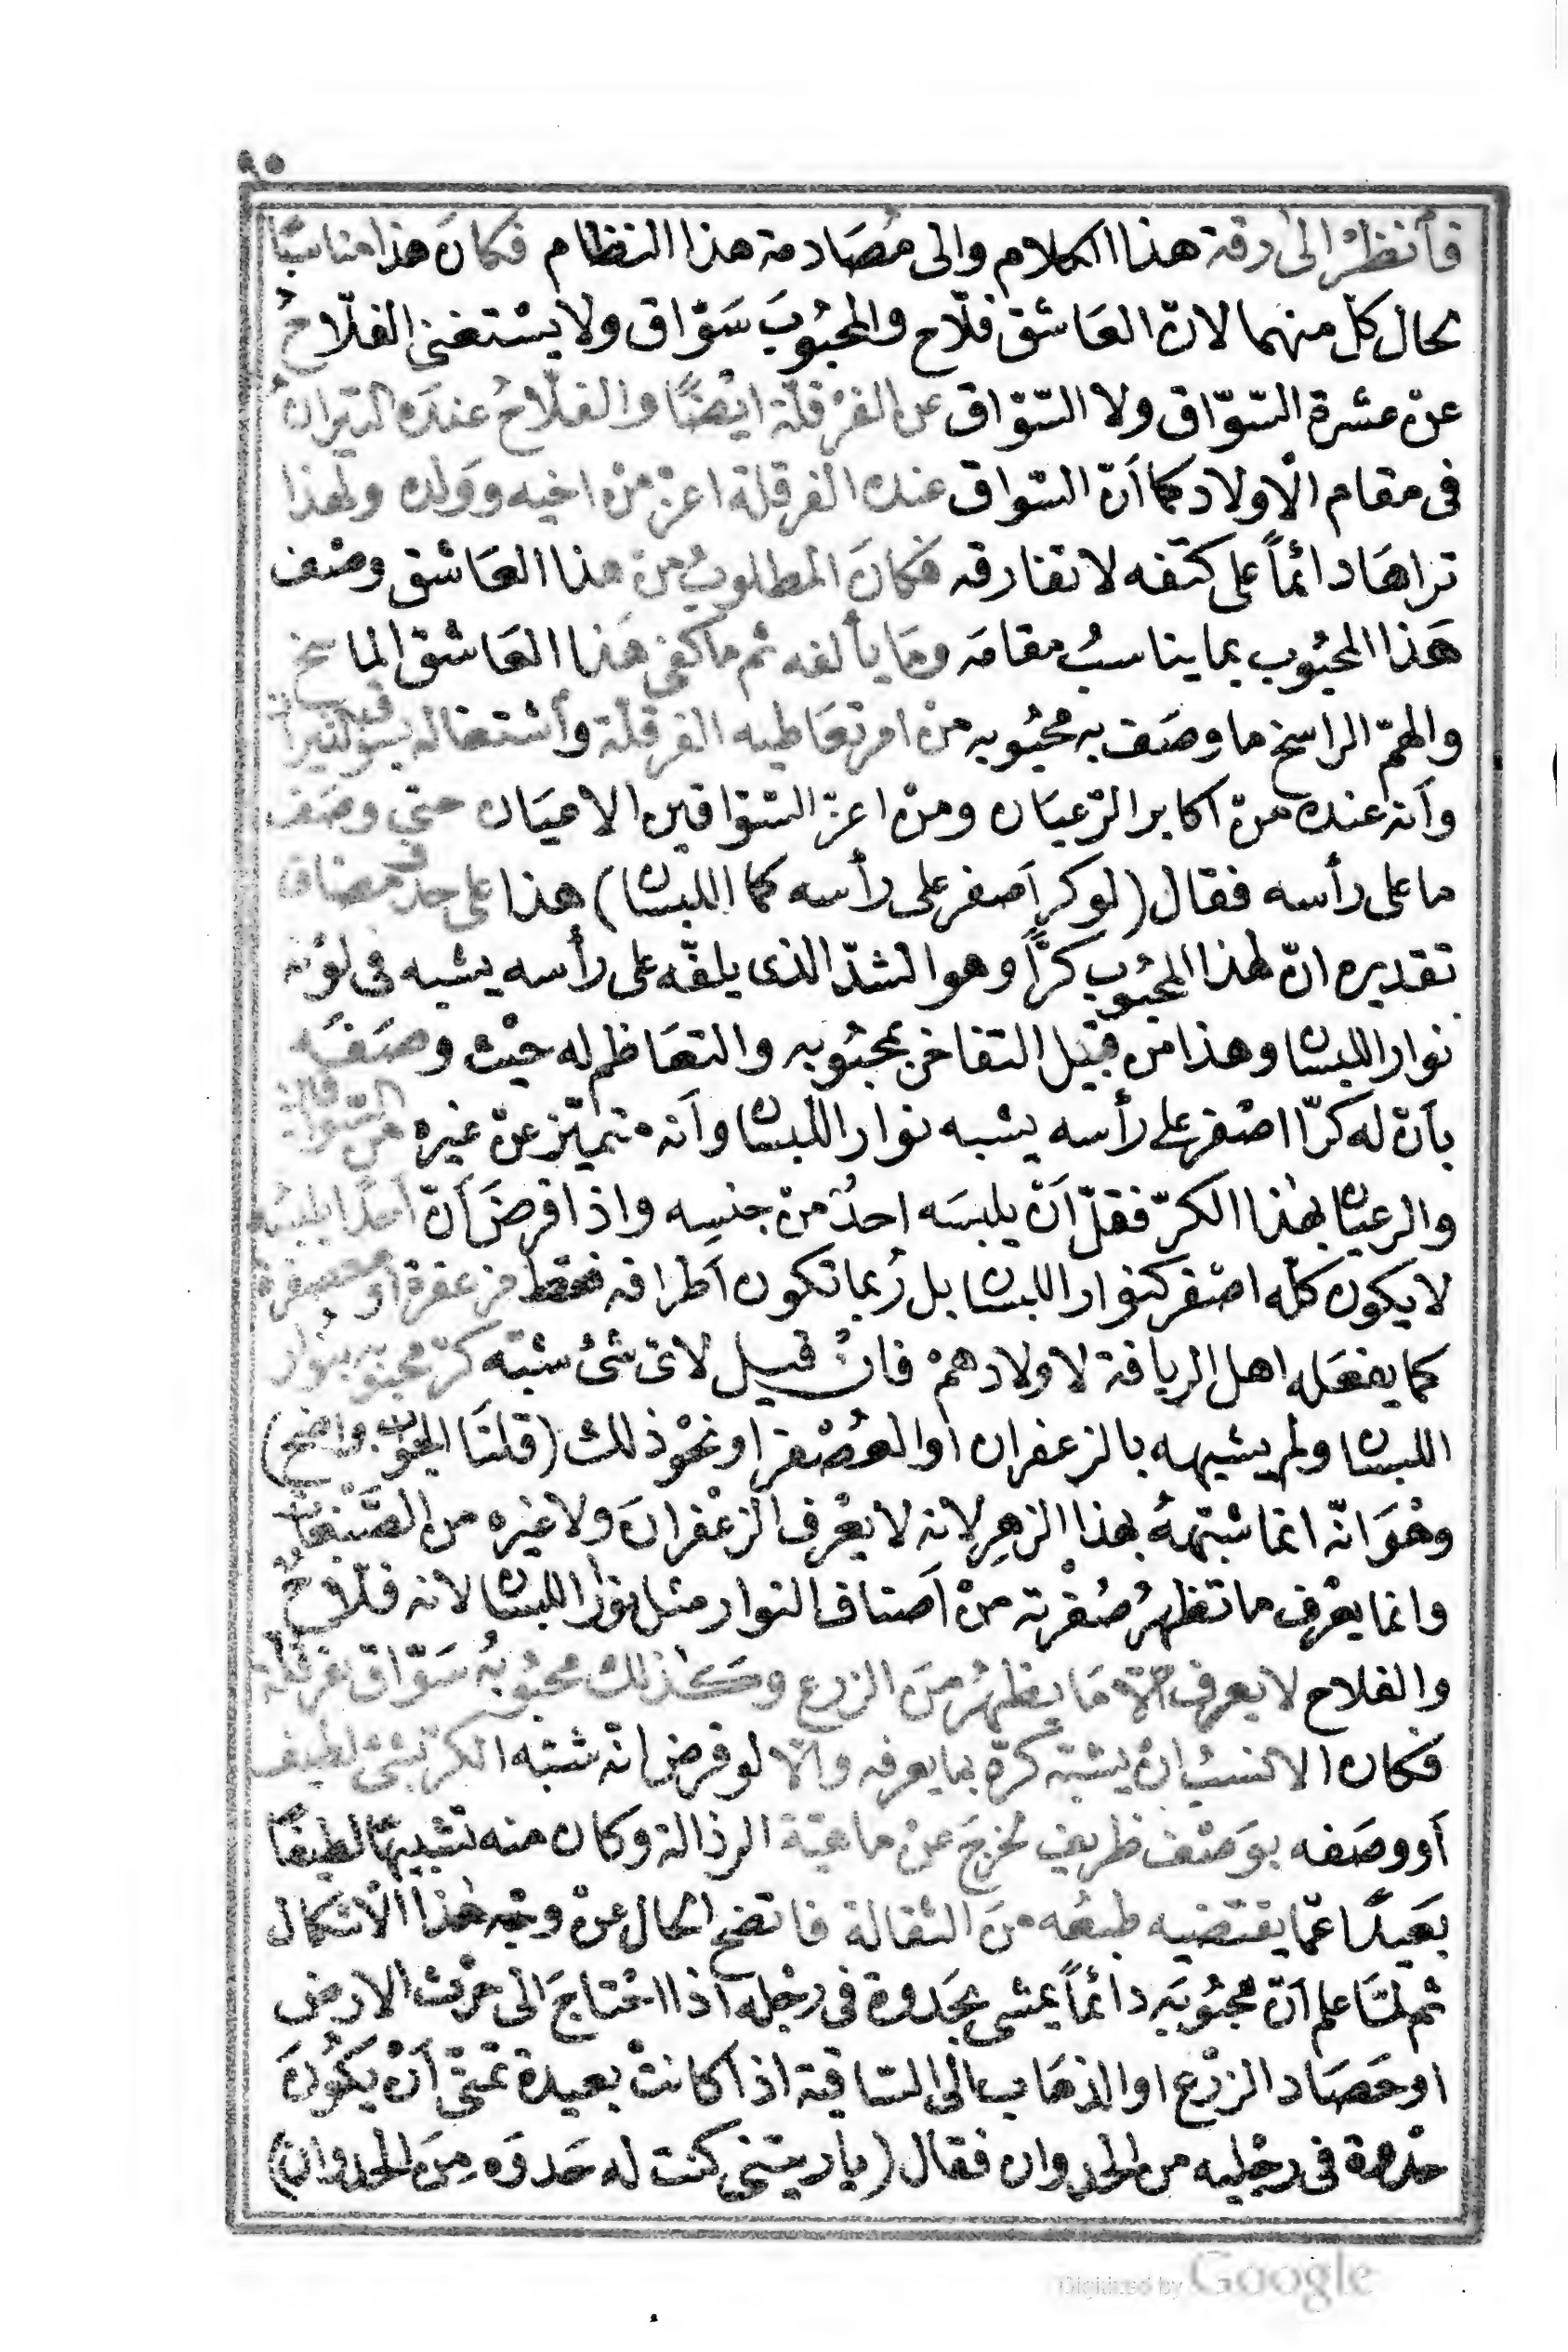 ٩٥
فأنظر الى رقة هذا الكلام والى مُصَادمة هذا النظام فكانَ هذا مناسبًا
بحال كل منهما لانّ العَاشق فلّاح والمحبُوبَ سَوّاق ولا يسْتغنى الفلّاحُ
عنْ عشرة السّوّاق ولا السّوّاق عن الفرْقلّة ايْضًا والفلّاحُ عندَه التيران
فى مقام الْاولاد كما اَنّ السّواق عنده الفرقلة اعزّ منْ اخيه ووَلده ولهذا
تراهَا دائماً على كتفه لا تفارقه فكانَ المطلوبُ منْ هذا العَاشق وصْف
هَذا المحبُوب بما يناسبُ مقامَه ومَا يألفه ثم ما كفى هَذا العَاشق الماسخ
والهمّ الراسخ ما وصَف به محبُوبه منْ امر تعَاطيه الفرقلّة وأشتغاله بسوق التيران
وأنه عنده منْ اكابر الرّعيَان ومنْ اعزّ السّوّاقين الاعيَان حتى وصَف
ما على رأسه فقال (لو كر اَصفر على رأسه كما اللبسان) هذا على حذف مضاف
تقديره انّ لهذا المحبُوب كرًّا وهو الشدّ الذى يلفّه على رأسه يشبه فى لوْنه
نوار اللبسان وهذا منْ قبيْل التفاخر بمحبُوبه والتعَاظم له حيْث وصَفَه
بأنّ له كرّا اصْفر على رأسه يشبه نوار اللبسان وأنه متميّز عنْ غيره من السّوّاقين
والرعيان بهٰذا الكرّ فقلّ اَنْ يلبسَه احدٌ منْ جنسِه واذا فرضَ اَنّ أحدًا يلبسُه
لا يكون كلّه اصْفر كنوار اللبسان بل رُبما تكون اَطرافه فقط مزعفرة أو معصفرة
كما يفعَله اهل الريافة لاولادهمْ فانْ قيل لاىّ شئ شبّه كرّ محبُوبه بنوار
اللبسان ولم يشبهه بالزعفران أو العُصْفر او نحْو ذلك (قلنَا الجوَاب واضح)
وهْوَ انّه انما شبّههُ بهذا الزهرِ لانه لا يعْرف الزعْفرانَ ولا غيْره من الصّبْغات
وانما يعْرف ما تظهرُ صُفْرته منْ اَصناف النوار مثل نوار اللبسان لانه فلّاحٌ
والفلاح لا يعرف الّا مَا يظهرُ منَ الزرع وكذلك محبُوبُه سَوّاق فرقلّة
فكان الانسبُ انْ يشبّه كرّه بما يعرفه والّا لو فرض انّه شبّه الكرّ بشئ لطيف
أو وصَفه بوَصْف ظريف لخرجَ عنْ ماهيّة الرذالة وكان منه تشبيهًا لطيفًا
بعَيدًا عمّا يقتضيه طبعُه منَ الثقالة فاتضح الحال عنْ وجْه هٰذا الْاشكال
ثم لمّا علم اَنّ محبُوبَه دائماً يمشى بحَدوة فى رجْله اذا احْتاجَ الى حرْث الارض
او حَصَاد الزرْع او الذهَاب الى السّاقية اذا كانتْ بعيدة تمنّى اَنْ يكُونَ
حدوة فى رجْليه من الحدوان فقال (يا ريتنى كنت له حَدوَه مِنَ الحدوان)
Digitized by Google